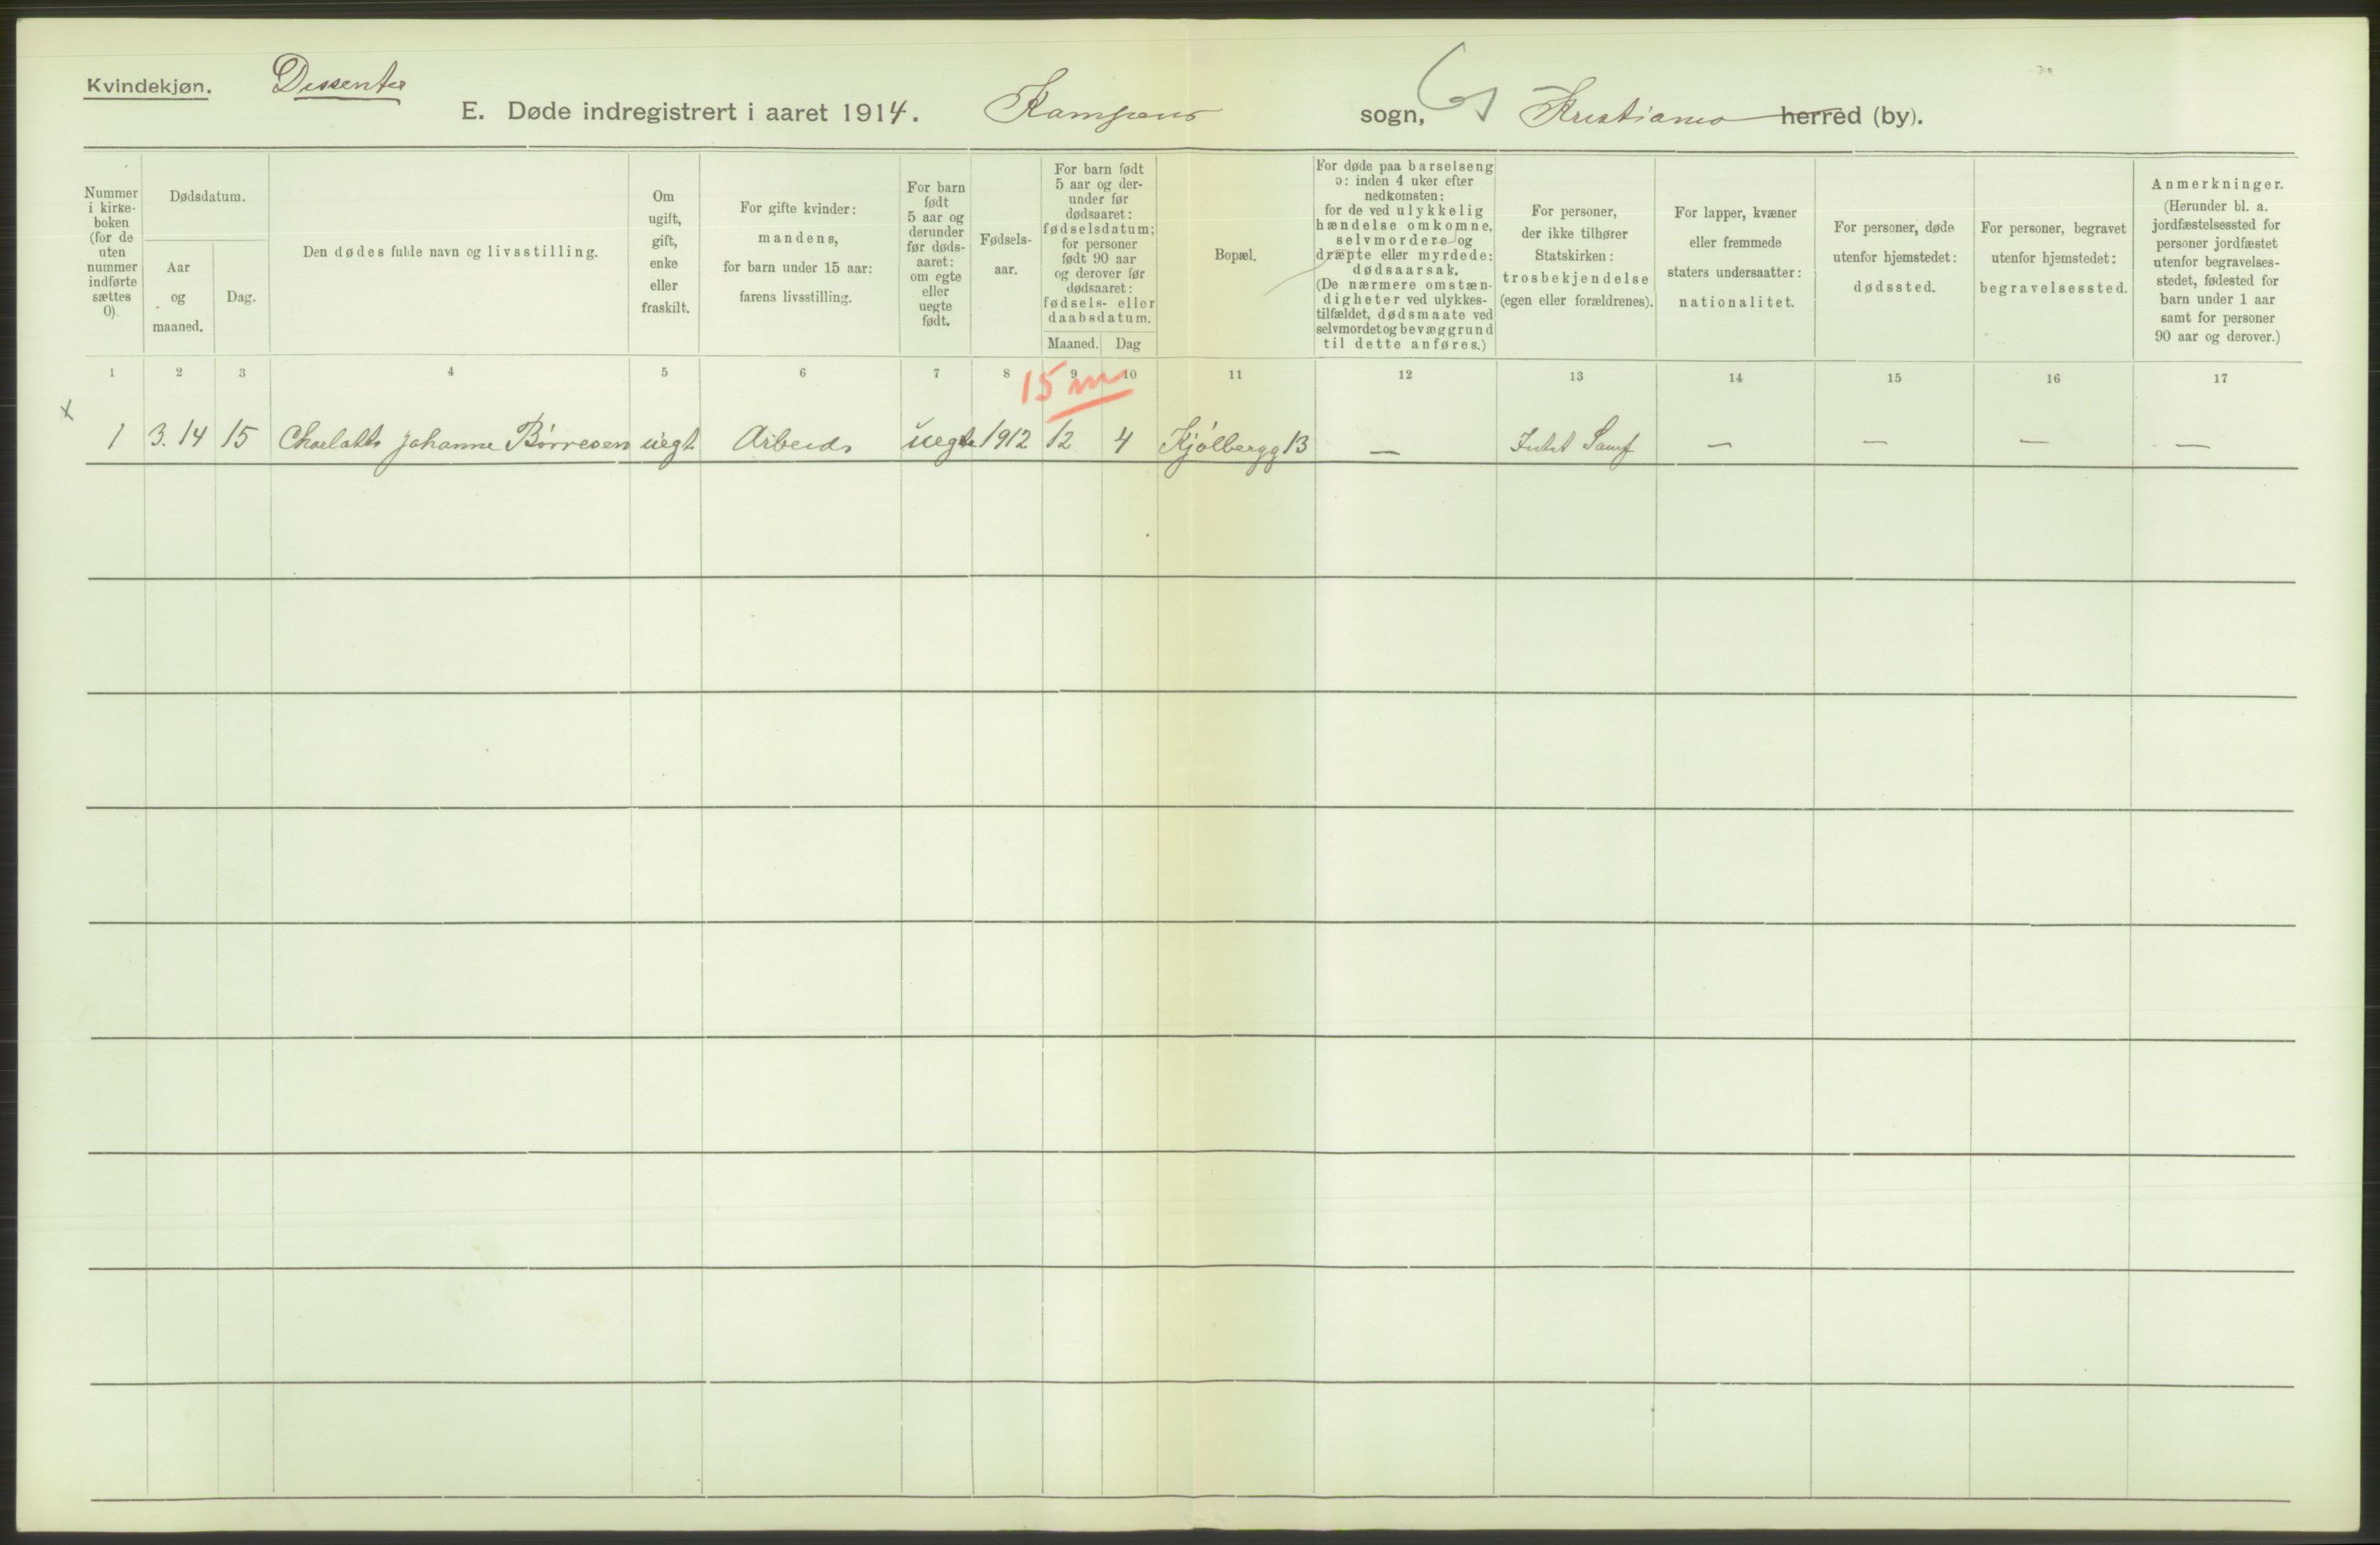 Kvindekjøn. Dissenter
E. Døde indregistrert i aaret 1914. Kampens sogn, Kristiania herred (by).
Nummer
i kirke-
boken
(for de
uten
nummer
indførte
sættes
0).
Dødsdatum.
Aar
og
maaned.
Dag.
Den dødes fulde navn og livsstilling.
Om
ugift,
gift,
enke
eller
fraskilt.
For gifte kvinder:
mandens,
for barn under 15 aar:
farens livsstilling.
For barn
født
5 aar og
derunder
før døds-
aaret:
om egte
eller
uegte
født.
Fødsels-
aar.
For barn født
5 aar og der-
under før
dødsaaret:
fødselsdatum;
for personer
født 90 aar
og derover før
dødsaaret:
fødsels- eller
daabsdatum.
Maaned. Dag
Bopæl.
For døde paa barselseng
ɔ: inden 4 uker efter
nedkomsten:
for de ved ulykkelig
hændelse omkomne,
selvmordere og
dræpte eller myrdede:
dødsaarsak.
(De nærmere omstæn-
digheter ved ulykkes-
tilfældet, dødsmaate ved
selvmordet og bevæggrund
til dette anføres.)
For personer,
der ikke tilhører
Statskirken:
trosbekjendelse
(egen eller forældrenes).
For lapper, kvæner
eller fremmede
staters undersaatter:
nationalitet.
For personer, døde
utenfor hjemstedet:
dødssted.
For personer, begravet
utenfor hjemstedet:
begravelsessted.
Anmerkninger.
(Herunder bl. a.
jordfæstelsessted for
personer jordfæstet
utenfor begravelses-
stedet, fødested for
barn under 1 aar
samt for personer
90 aar og derover.)
1 2 3 4 5 6 7 8 9 10 11 12 13 14 15 16 17
15 m
1 3. 14 15 Charlotte Johanne Børresen uegt. Arbeids uegte 1912 12 4 Kjølbergg 13 — Intet Samf — — — —